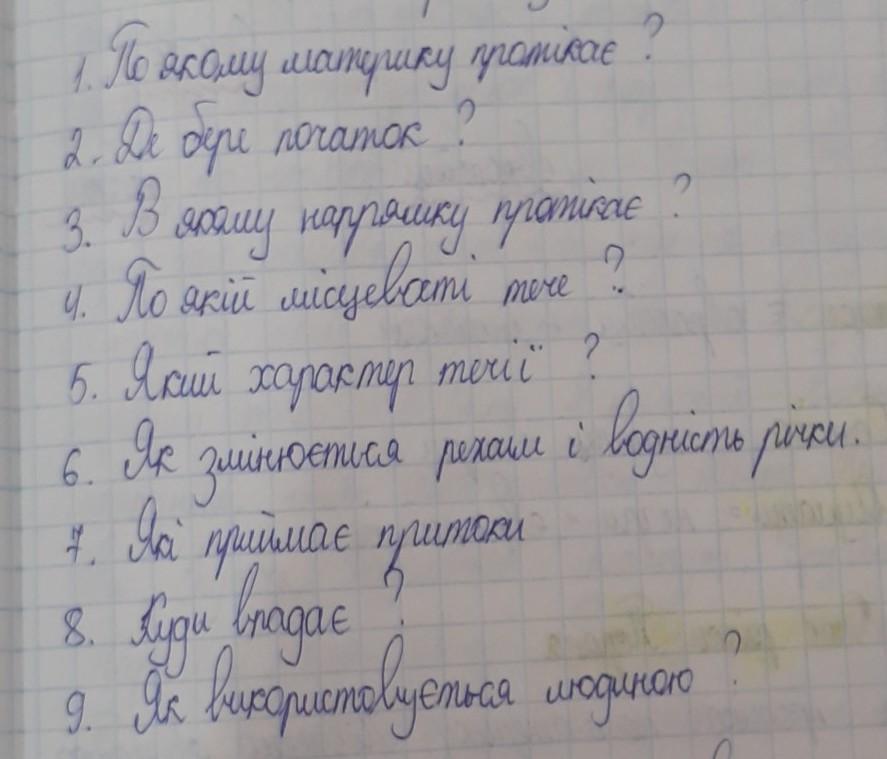 1. По якому материку протікає ?
2. Де бере початок ?
3. В якому напрямку протікає ?
4. По якій місцевості тече ?
5. Який характер течії ?
6. Як змінюється режим і водність річки.
7. Які приймає притоки
8. Куди впадає ?
9. Як використовується людиною ?